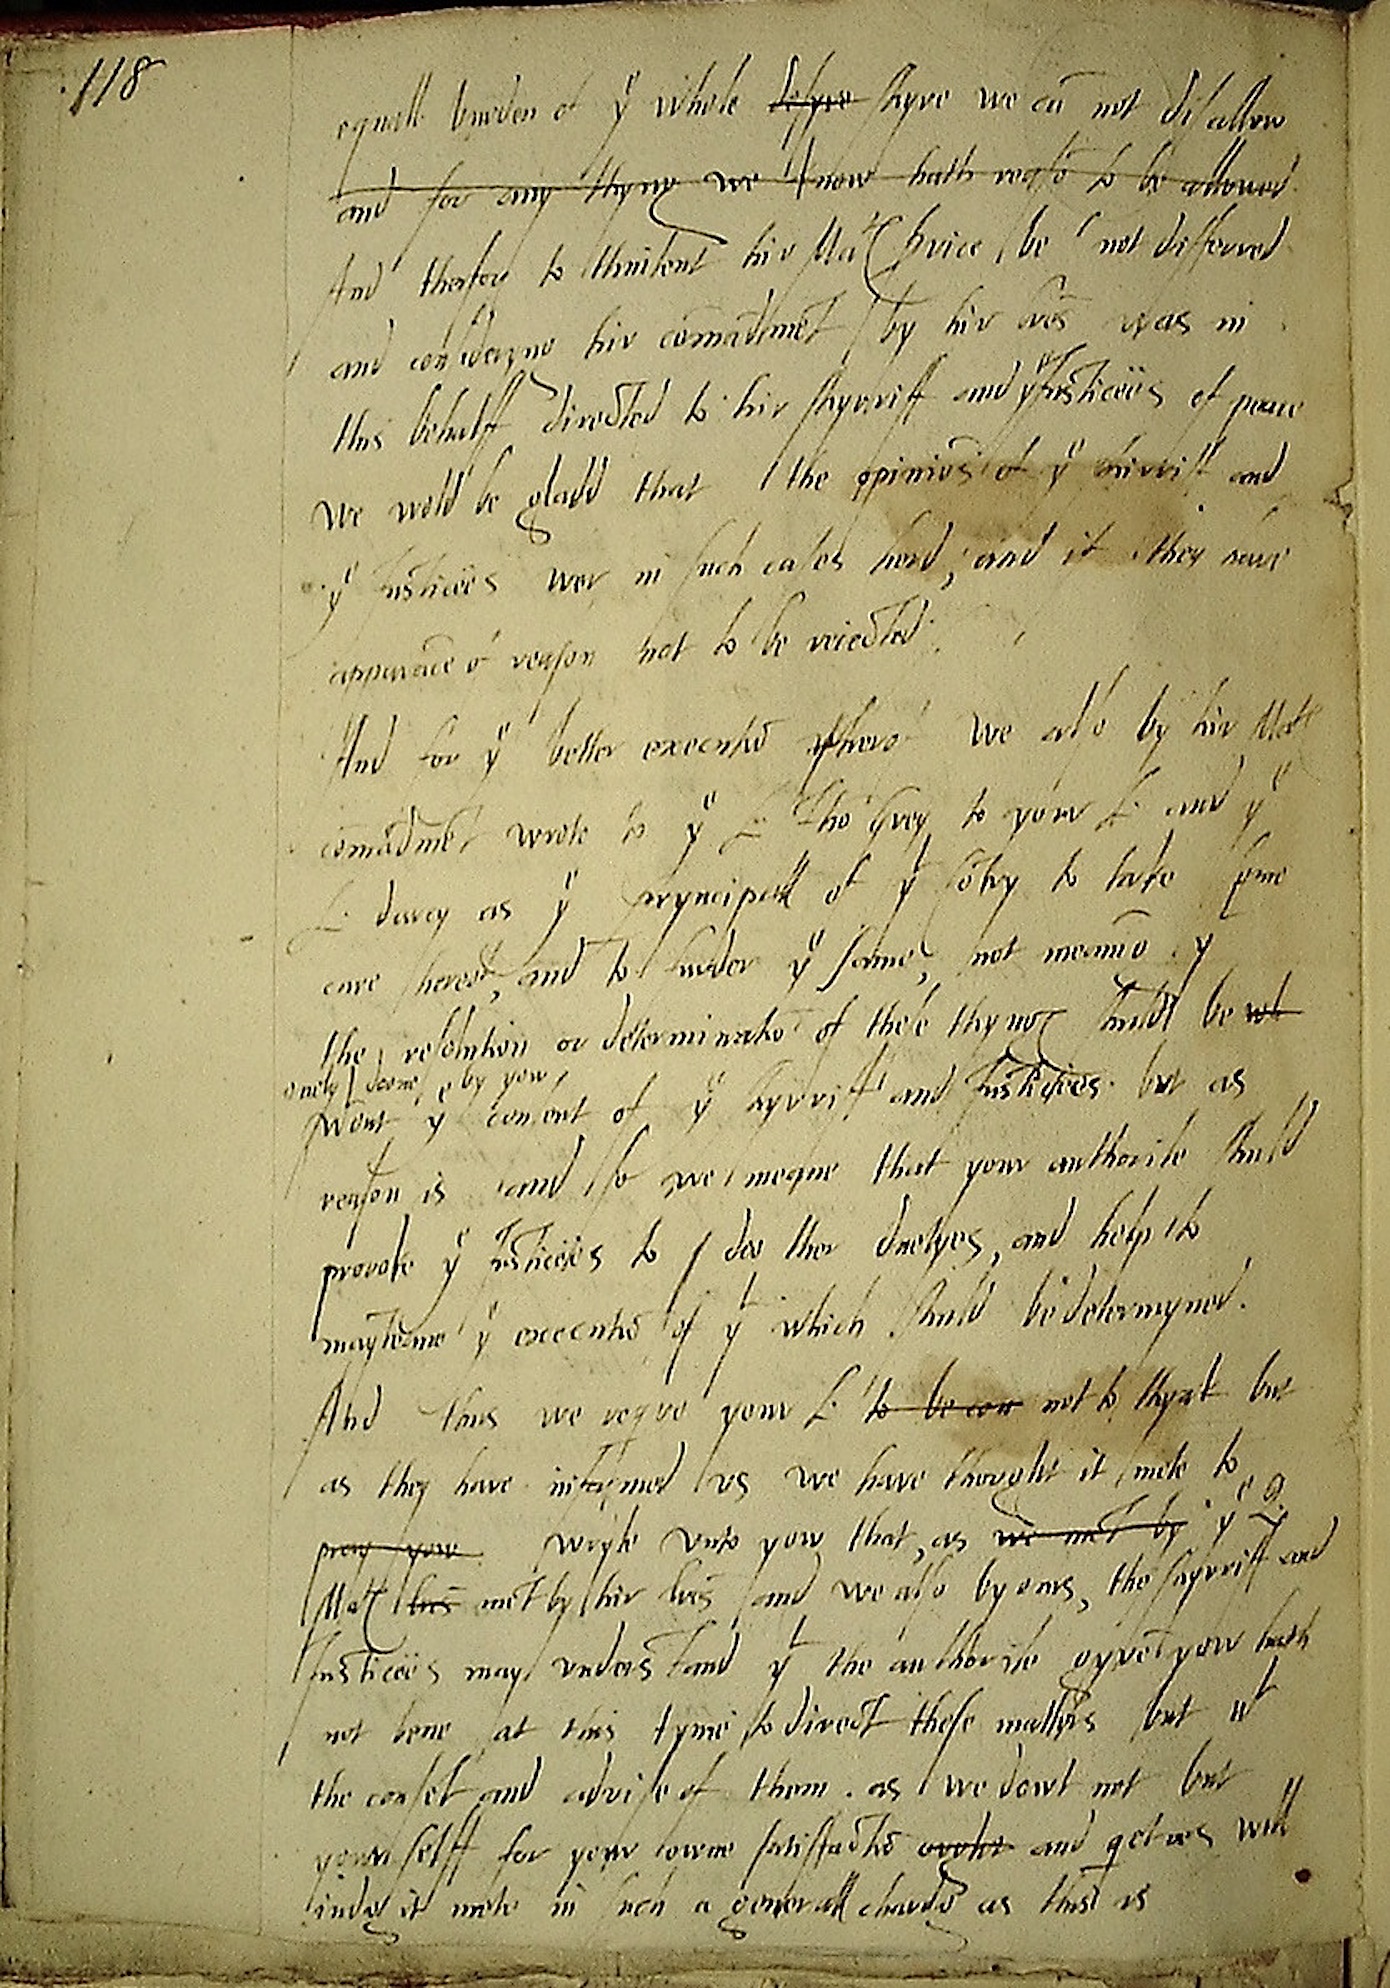 118
equall burden of yͤ whole desyre shyre we cā not disallow
and for any thyng we know hath reasō to be allowed
And therfor to thintent hir Maᵗ service be not differred
and consideryng hir comādmēt by hir lr̄es was in
this behalff directed to hir shyrriff and yͤ Justicees of peace
we wold be gladd that the opiniōs of yͤ shirriff and
yͤ Justicees wer in such cases herd, and if they have
apparāce of reason not to be reiected.
And for yͤ better executiō therof we also by hir Maᵗⁱᵉ
comādmēt wrote to yͤ L. Jhō Grey to your L. and yͤ
L. darcy as yͤ pryncipall of yᵗ cōtry to take some
care herof, and to furder yͤ same, not meanīg yᵗ
the resolution or determinatiō of these thyngs shuld be wt
onely doone by yow
wᵗout yͤ consent of yͤ shyrriff and Justicees. but as
reason is and so we meane that your authorite shuld
provoke yͤ Justicees to doo ther duetyes, and help to
mayteane yͤ executiō of yᵗ which shuld be determyned.
And thus we reqre your L. to be con not to thynk but
as they have informed us we have thought it mete to
pray yow wryte unto yow that, as we mēt by yͤ Q.
Maᵗ lr̄es mēt by hir lr̄es and we also by ours, the shyrriff and
Justicees may understand yᵗ the authorite gyvē yow hath
not bene at this tyme to direct these matters but wᵗ
the consēt and advise of them. as we dowt not but
yourselff for your owne satisfactiō and qetnes will
judg it mete in such a generall chardg as this is